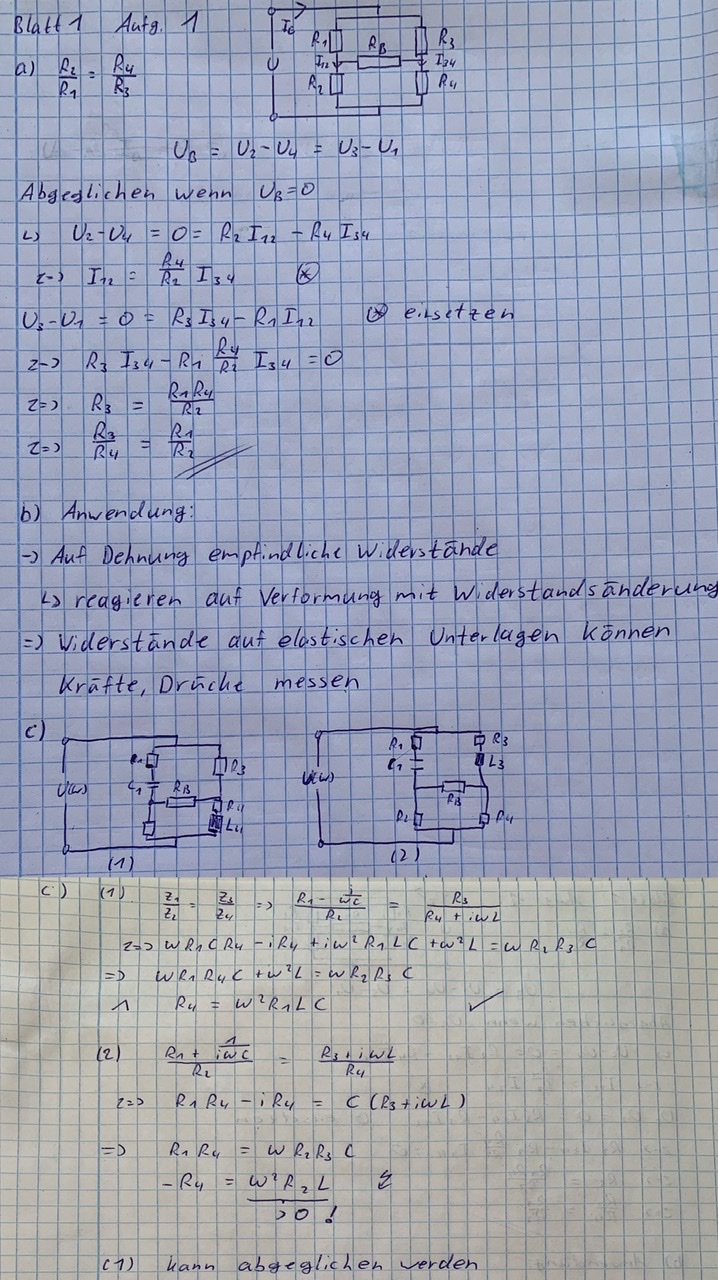 Blatt 1 Aufg. 1
I₀ R₁ R_B R₃
U I₁₂ I₃₄
R₂ R₄
a) R₂/R₁ = R₄/R₃
U_B = U₂ - U₄ = U₃ - U₁
Abgeglichen wenn U_B = 0
↳ U₂ - U₄ = 0 = R₂ I₁₂ - R₄ I₃₄
=> I₁₂ = R₄/R₂ I₃₄ (*)
U₃ - U₁ = 0 = R₃ I₃₄ - R₁ I₁₂ (*) einsetzen
=> R₃ I₃₄ - R₁ R₄/R₂ I₃₄ = 0
=> R₃ = R₁R₄/R₂
=> R₃/R₄ = R₁/R₂
b) Anwendung:
-> Auf Dehnung empfindliche Widerstände
↳ reagieren auf Verformung mit Widerstandsänderung
=> Widerstände auf elastischen Unterlagen können
Kräfte, Drücke messen
c)
R₁ R₃
U(ω) C₁ R_B R₄
L₄
(1)
R₁ R₃
C₁ L₃
U(ω) R_B
R₂ R₄
(2)
c) (1) Z₁/Z₂ = Z₃/Z₄ => (R₁ - i/ωC)/R₂ = R₃/(R₄ + iωL)
=> ωR₁CR₄ - iR₄ + iω²R₁LC + ω²L = ωR₂R₃C
=> ωR₁R₄C + ω²L = ωR₂R₃C
∧ R₄ = ω²R₁LC ✓
(2) (R₁ + 1/iωC)/R₂ = (R₃ + iωL)/R₄
=> R₁R₄ - iR₄ = C(R₃ + iωL)
=> R₁R₄ = ωR₂R₃C
-R₄ = ω²R₂L ↯
> 0 !
(1) kann abgeglichen werden